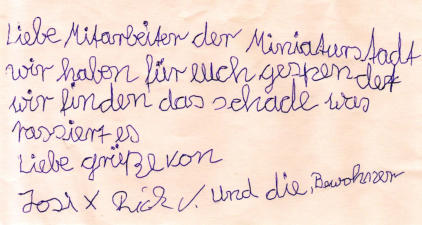 Liebe Mitarbeiter der Miniaturstadt
wir haben für euch gespendet
wir finden das schade was
rassiert es
Liebe grüße von
Josi X Rick V. und die, Bewohner